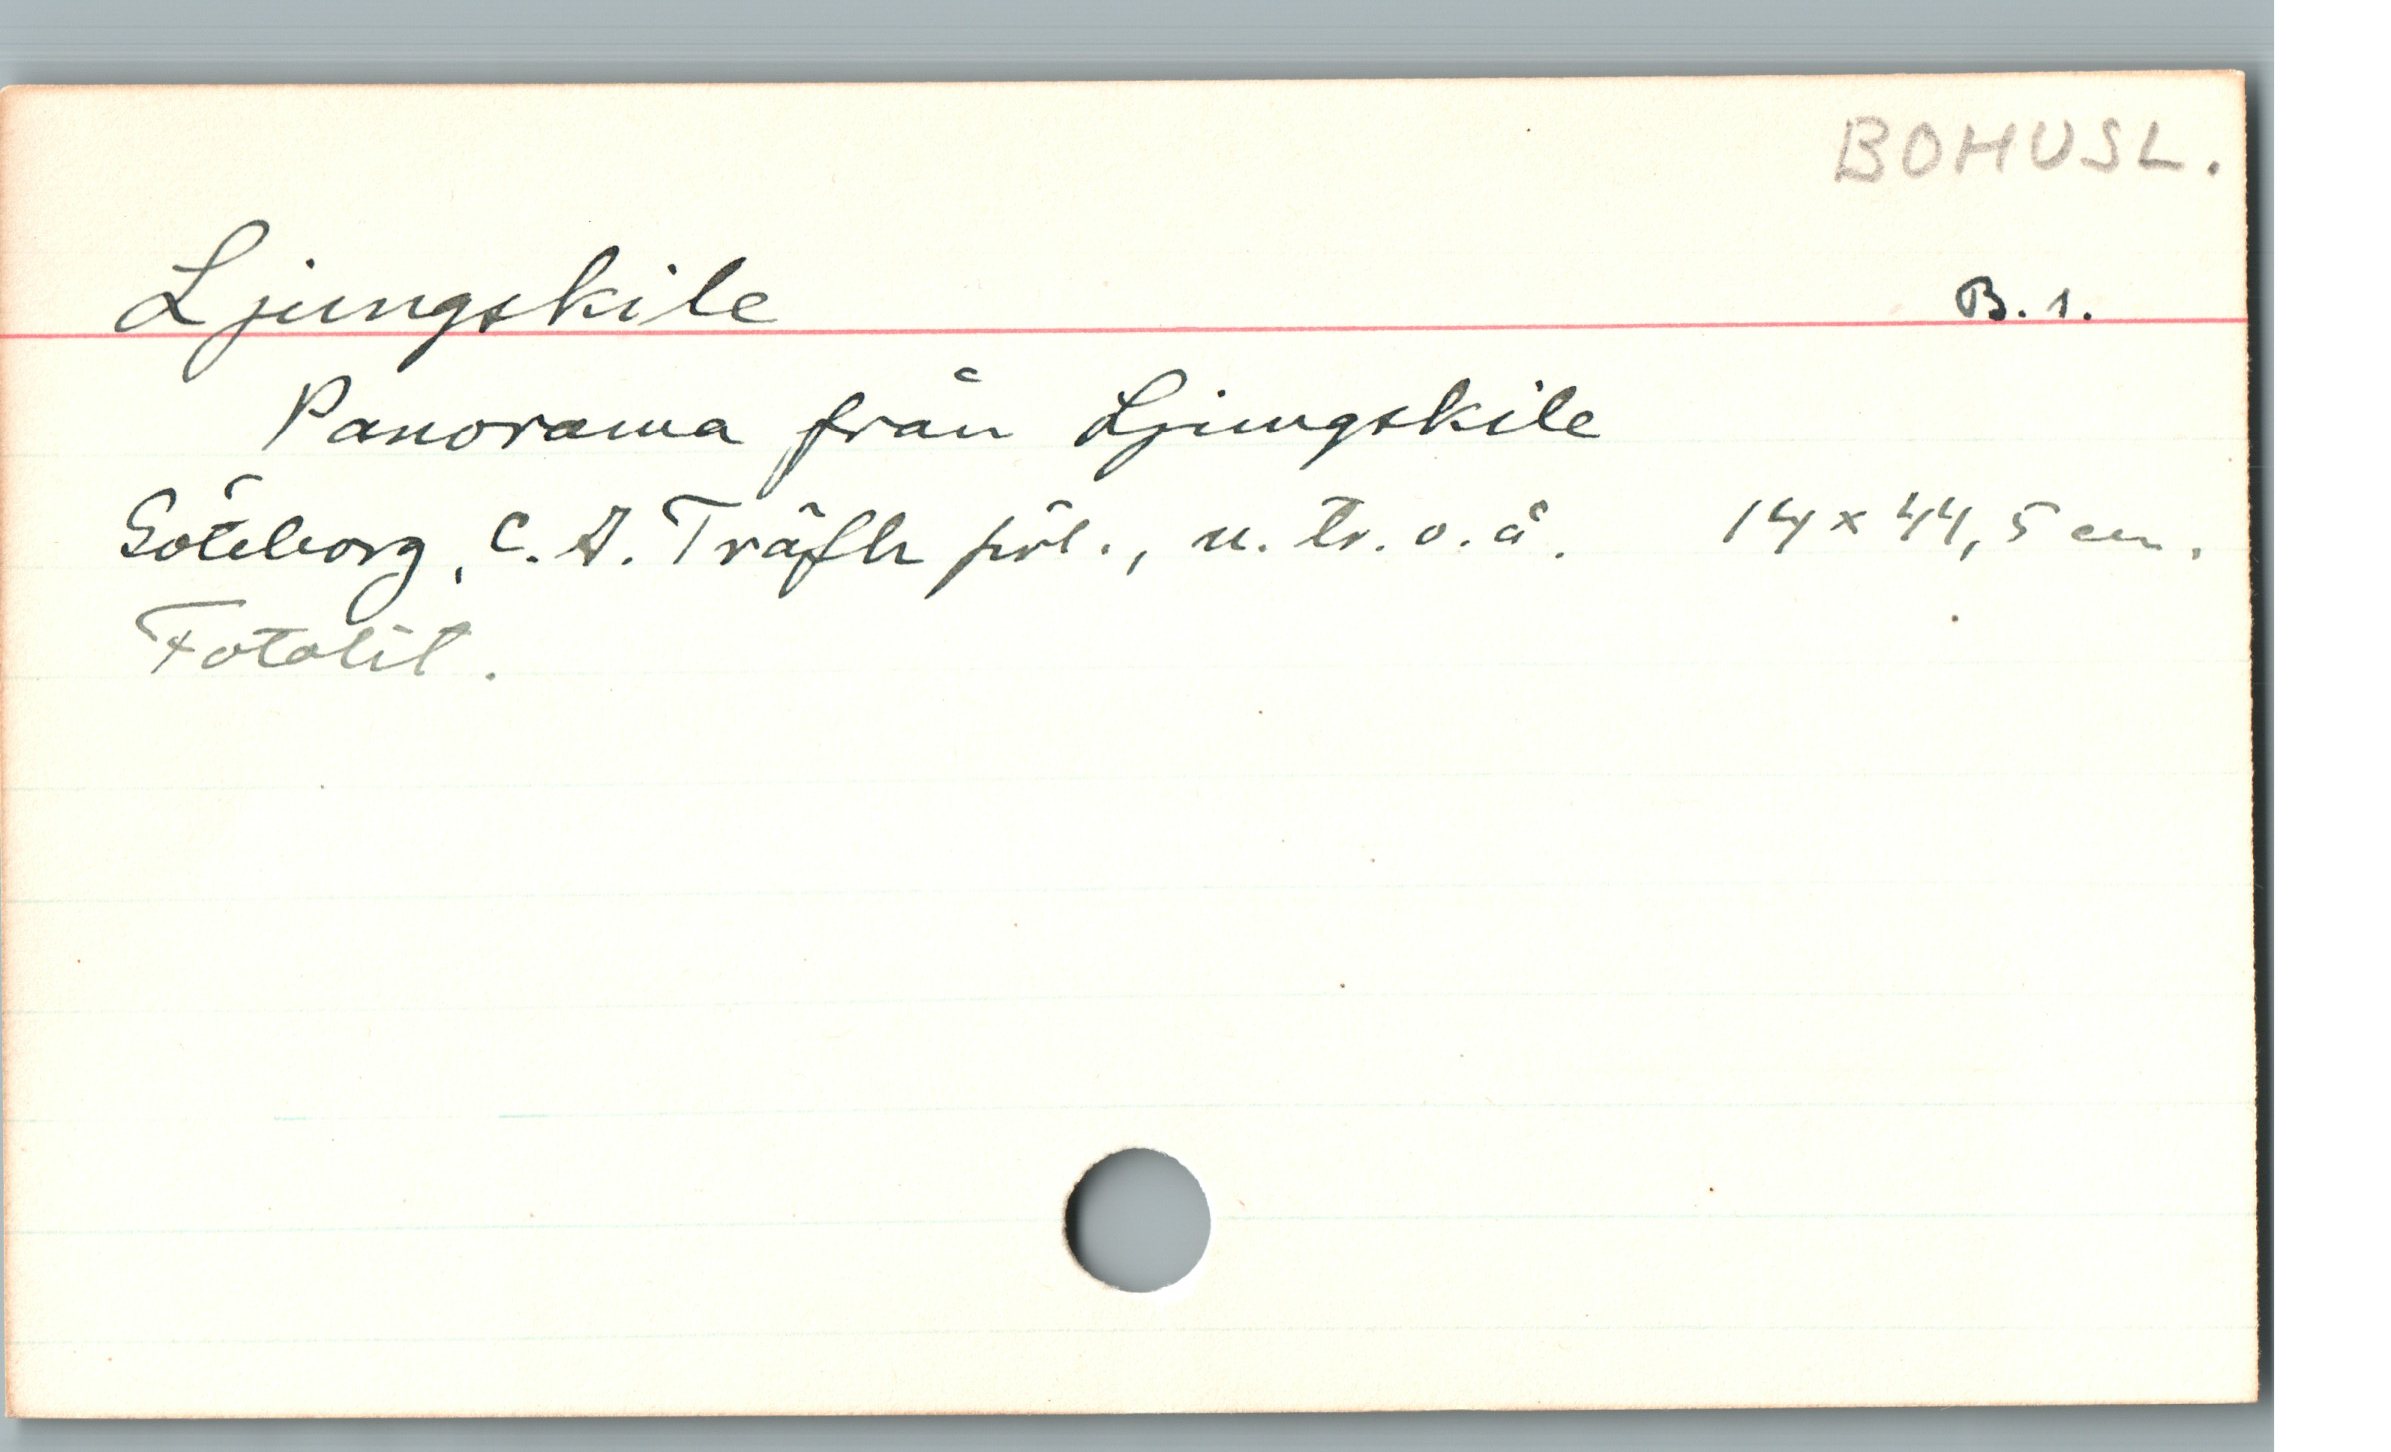 BOHUSL.
Ljungskile B. 1.
Panorama från Ljungskile
Göteborg, C. A. Träfh förl., u. tr. o. å. 14 x 44,5 cm.
Fotolit.